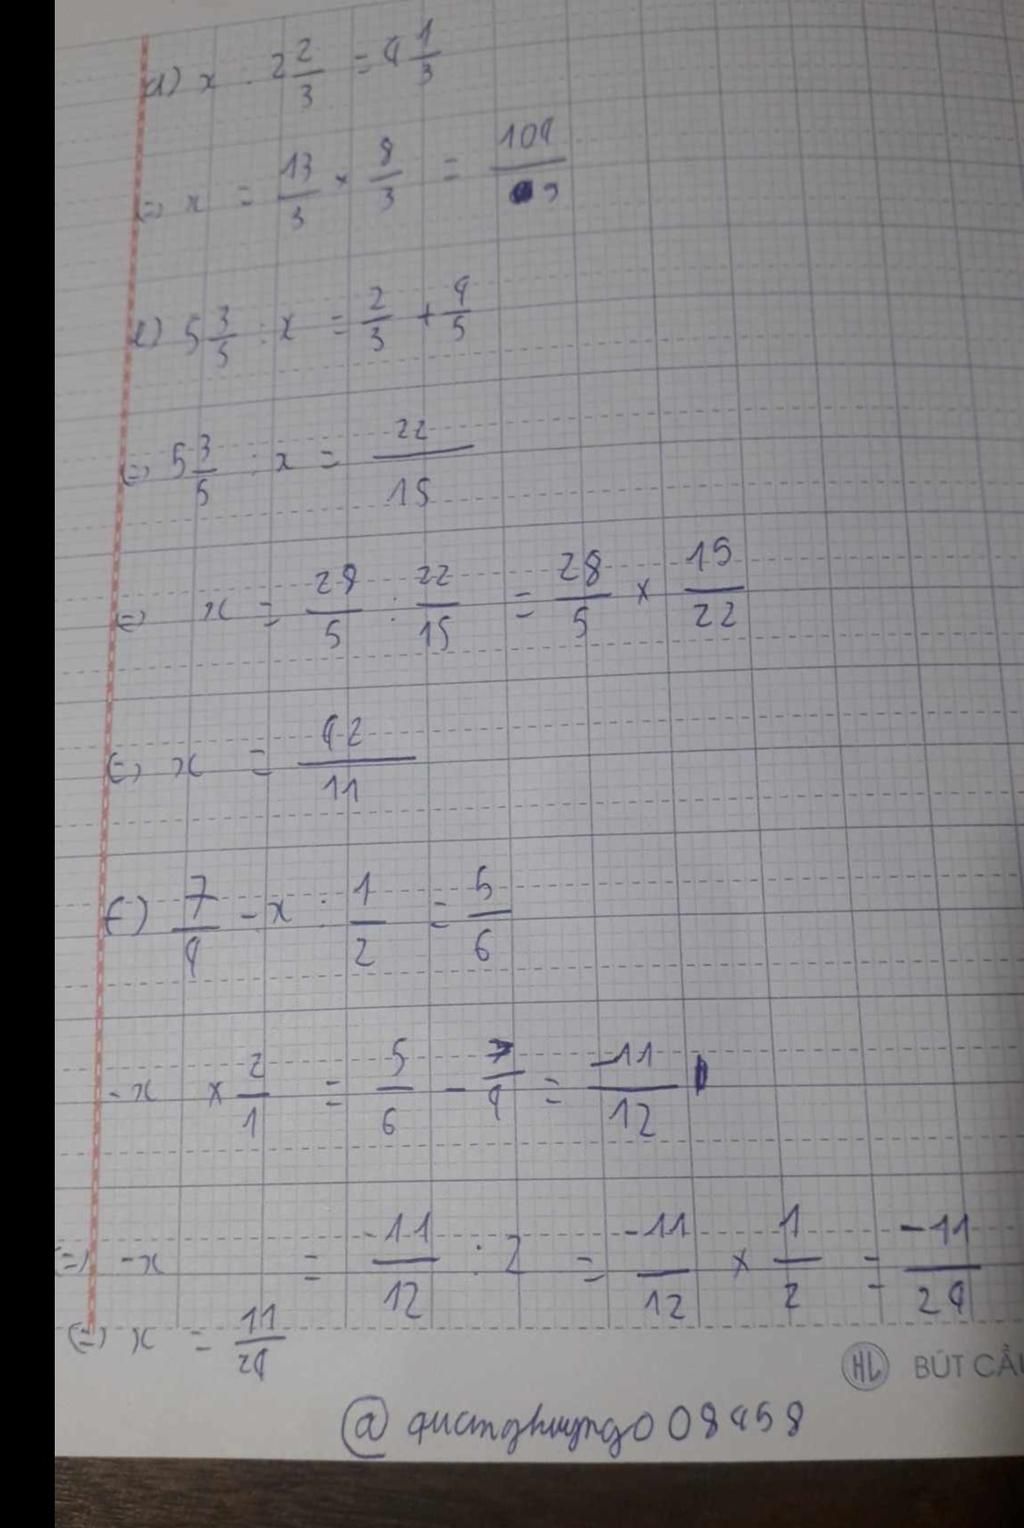 d) x : 2 2/3 = 4 1/3
(=) x = 13/3 × 8/3 = 104/9
e) 5 3/5 : x = 2/3 + 4/5
(=) 5 3/5 : x = 22/15
(=) x = 28/5 : 22/15 = 28/5 × 15/22
(=) x = 42/11
f) 7/4 - x : 1/2 = 5/6
-x × 2/1 = 5/6 - 7/4 = -11/12
(=) -x = -11/12 : 2 = -11/12 × 1/2 = -11/24
(=) x = 11/24
HL BÚT CẦ
@ quanghuyngo08458